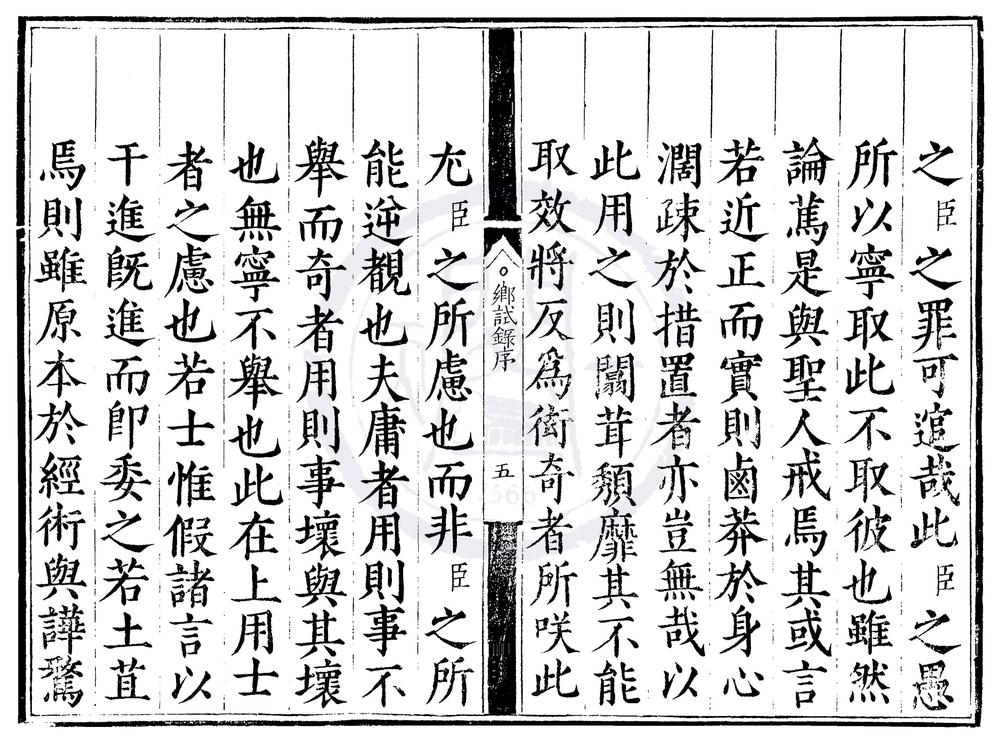 之臣之罪可逭哉此臣之愚
所以寧取此不取彼也雖然
論篤是與聖人戒焉其或言
若近正而實則鹵莽於身心
濶疎於措置者亦豈無哉以
此用之則闒茸頹靡其不能
取效將反爲衒奇者所咲此
鄉試錄序 五
尤臣之所慮也而非臣之所
能逆覩也夫庸者用則事不
舉而奇者用則事壞與其壞
也無寧不舉也此在上用士
者之慮也若士惟假諸言以
干進旣進而卽委之若土苴
焉則雖原本於經術與譁驚